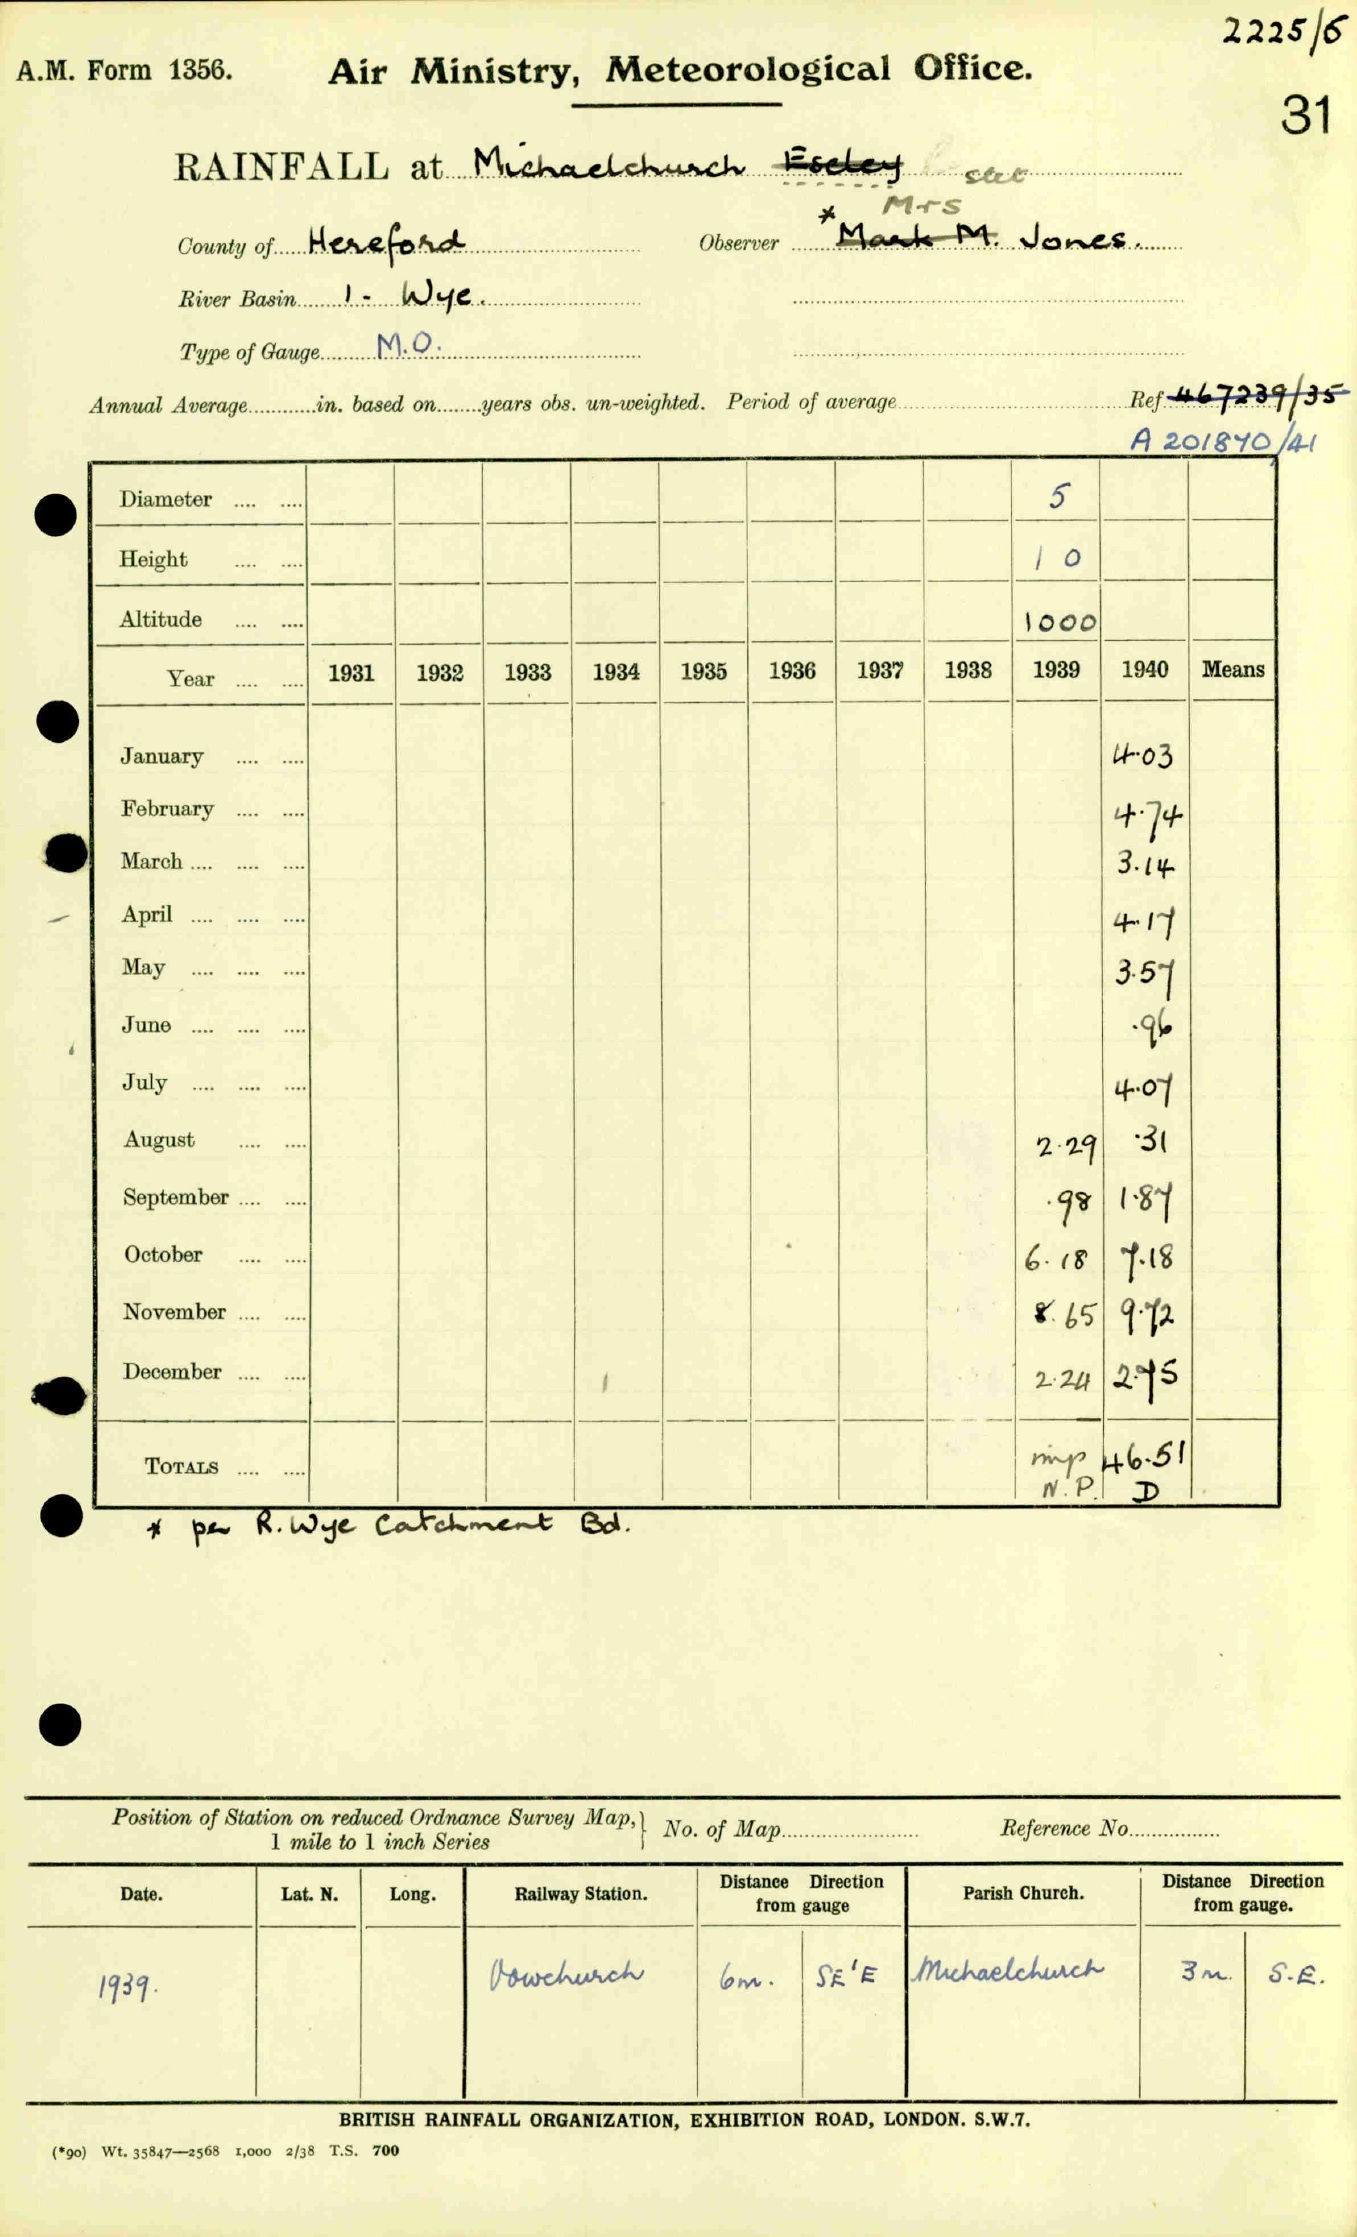 2225/6
A.M. Form 1356. Air Ministry, Meteorological Office.
31
RAINFALL at Michaelchurch Escley stet
Mrs
County of Hereford Observer * Mark M. Jones.
River Basin 1 - Wye.
Type of Gauge M.O.
Annual Average in. based on years obs. un-weighted. Period of average Ref 467239/35
A 201870/41
Diameter .... .... 5
Height .... .... 10
Altitude .... .... 1000
Year .... .... 1931 1932 1933 1934 1935 1936 1937 1938 1939 1940 Means
January .... .... 4.03
February .... .... 4.74
March .... .... .... 3.14
April .... .... .... 4.17
May .... .... .... 3.57
June .... .... .... .96
July .... .... .... 4.07
August .... .... 2.29 .31
September .... .... .98 1.87
October .... .... 6.18 7.18
November .... .... 8.65 9.72
December .... .... 2.24 2.75
TOTALS .... .... 46.51
N.P. D
* per R. Wye Catchment Bd.
Position of Station on reduced Ordnance Survey Map, } No. of Map Reference No.
1 mile to 1 inch Series
Date. Lat. N. Long. Railway Station. Distance Direction from gauge Parish Church. Distance Direction from gauge.
1939. Vowchurch 6m. SE'E Michaelchurch 3m. S.E.
BRITISH RAINFALL ORGANIZATION, EXHIBITION ROAD, LONDON. S.W.7.
(*90) Wt. 35847—2568 1,000 2/38 T.S. 700